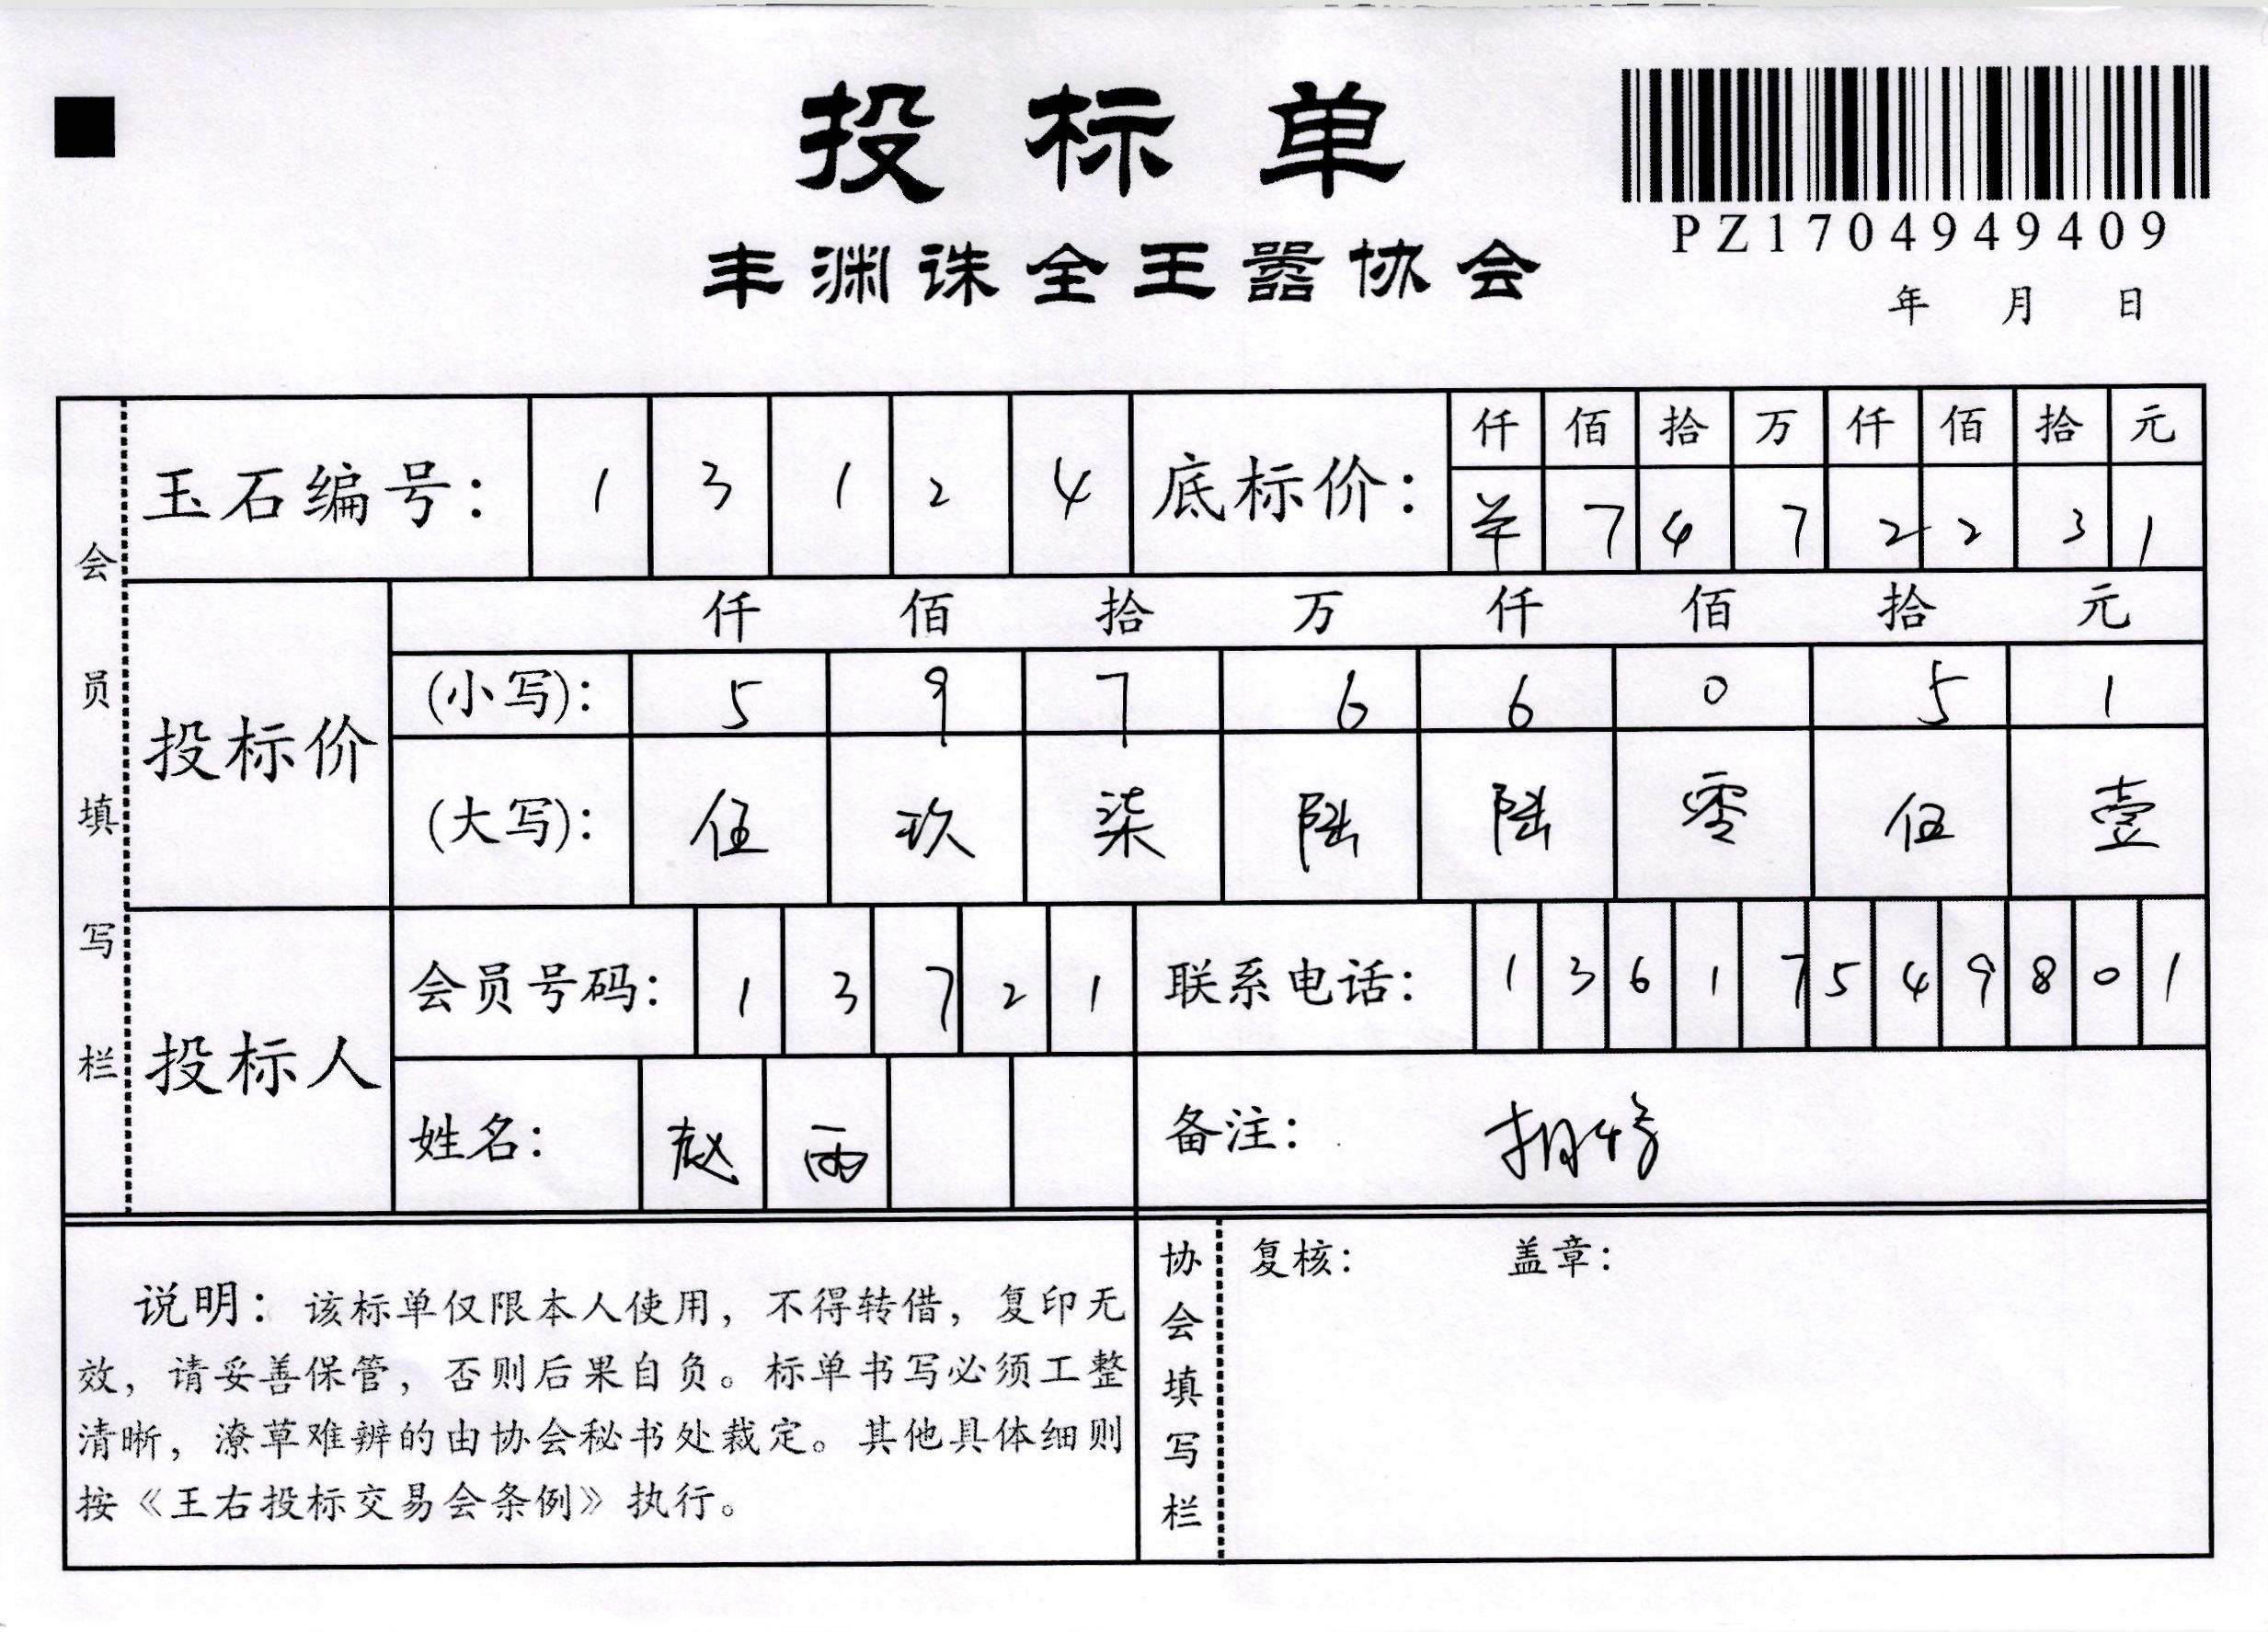 投标单
PZ1704949409
丰渊诛全王嚣协会
年 月 日
会员填写栏
玉石编号: 1 3 1 2 4 底标价: 仟 佰 拾 万 仟 佰 拾 元
7 4 7 2 2 3 1
投标价 仟 佰 拾 万 仟 佰 拾 元
(小写): 5 9 7 6 6 0 5 1
(大写): 伍 玖 柒 陆 陆 零 伍 壹
投标人 会员号码: 1 3 7 2 1 联系电话: 1 3 6 1 7 5 4 9 8 0 1
姓名: 赵 雨 备注:
说明: 该标单仅限本人使用, 不得转借, 复印无
效, 请妥善保管, 否则后果自负。标单书写必须工整
清晰, 潦草难辨的由协会秘书处裁定。其他具体细则
按《王右投标交易会条例》执行。
协会填写栏 复核: 盖章: